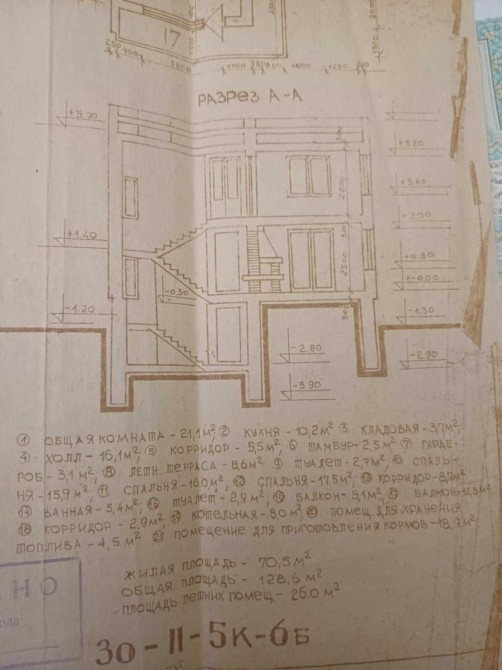 17
1100
1600
1200
РАЗРЕЗ А-А
+5.20
+3.60
+1.40
2500
+0.80
±0.00
-0.30
-1.20
-1.30
-2.80
-2.90
-3.90
① ОБЩАЯ КОМНАТА - 21,1 м², ② КУХНЯ - 10,2 м² ③ КЛАДОВАЯ - 3,7 м²,
④ ХОЛЛ - 16,1 м², ⑤ КОРРИДОР - 5,5 м², ⑥ ТАМБУР - 2,5 м² ⑦ ГАРДЕ-
РОБ - 3,1 м², ⑧ ЛЕТН. ТЕРРАСА - 8,6 м² ⑨ ТУАЛЕТ - 2,7 м², ⑩ СПАЛЬ-
НЯ - 15,9 м² ⑪ СПАЛЬНЯ - 16.0 м², ⑫ СПАЛЬНЯ - 17.5 м², ⑬ КОРРИДОР
⑭ ВАННАЯ - 5,4 м², ⑮ ТУАЛЕТ - 2,9 м², ⑯ БАЛКОН - 5,1 м², ⑰ БАЛКОН
⑱ КОРРИДОР - 2,9 м², ⑲ КОТЕЛЬНАЯ - 8.0 м², ⑳ ПОМЕЩ. ДЛЯ ХРАНЕНИЯ
ТОПЛИВА - 4,5 м² ㉑ ПОМЕЩЕНИЕ ДЛЯ ПРИГОТОВЛЕНИЯ КОРМОВ - 18,9 м².
ЖИЛАЯ ПЛОЩАДЬ - 70,5 м²
ОБЩАЯ ПЛОЩАДЬ - 128,6 м²
ПЛОЩАДЬ ЛЕТНИХ ПОМЕЩ. - 26.0 м²
НО
30-II-5К-6Б